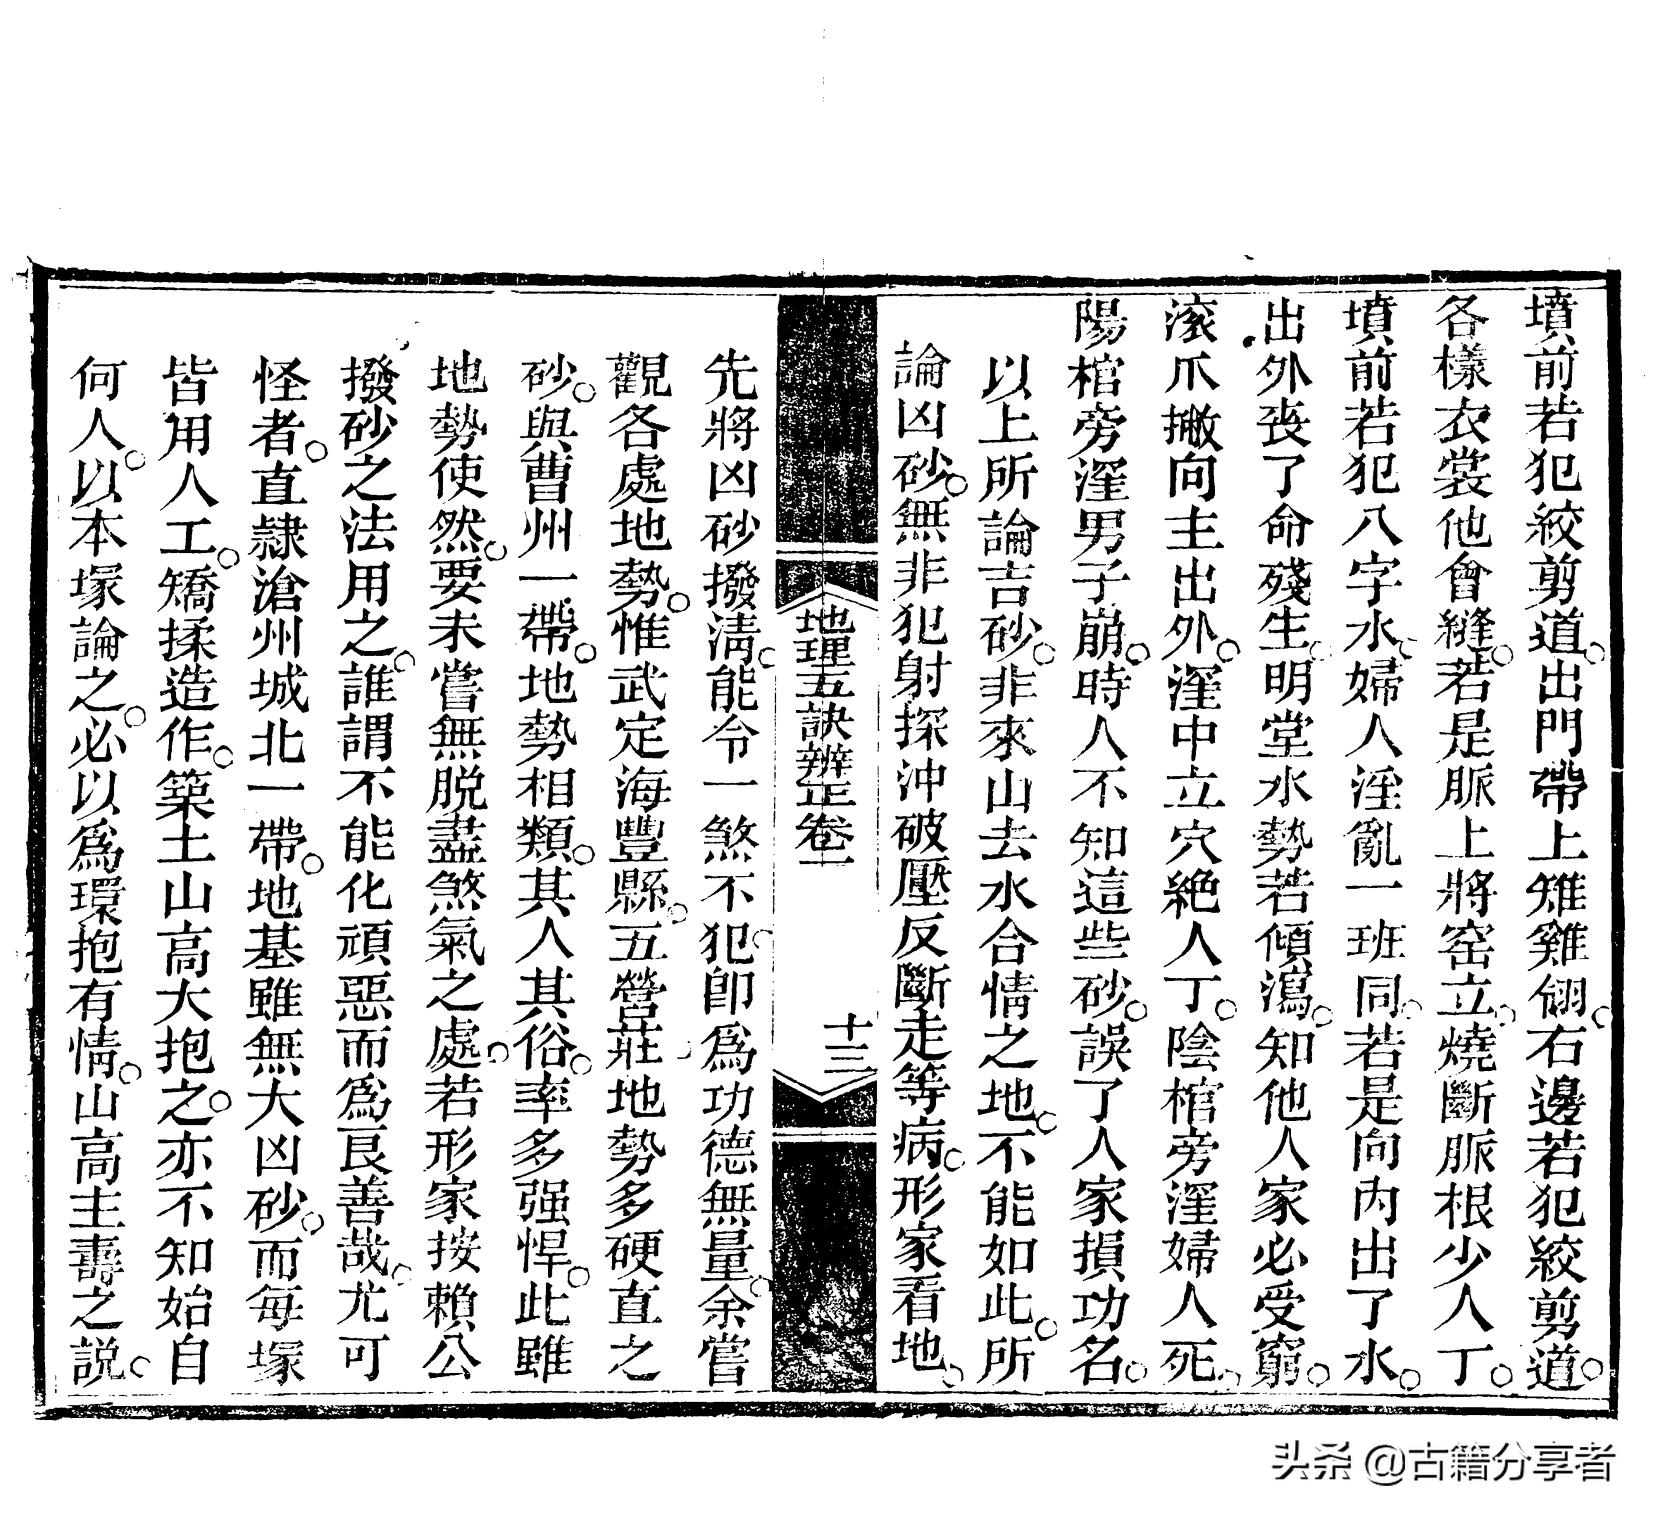 墳前若犯絞剪道。出門帶上雉雞翎。右邊若犯絞剪道。
各樣衣裳他會縫。若是脈上將窑立。燒斷脈根少人丁。
墳前若犯八字水。婦人淫亂一班同。若是向內出了水。
出外喪了命殘生。明堂水勢若傾瀉。知他人家必受窮。
滚爪撇向主出外。滛中立穴絶人丁。陰棺旁滛婦人死。
陽棺旁滛男子崩。時人不知這些砂。誤了人家損功名。
以上所論吉砂。非來山去水合情之地。不能如此。所
論凶砂。無非犯射探沖破壓反斷走等病。形家看地。
地理五訣辨正卷一
十三
先將凶砂撥淸。能令一煞不犯。卽爲功德無量。余嘗
觀各處地勢。惟武定海豐縣。五營莊地勢多硬直之
砂。與曹州一帶。地勢相類。其人其俗。率多强悍。此雖
地勢使然。要未嘗無脱盡煞氣之處。若形家按賴公
撥砂之法用之。誰謂不能化頑惡而爲良善哉。尤可
怪者。直隸滄州城北一帶。地基雖無大凶砂。而每塚
皆用人工。矯揉造作。築土山高大抱之。亦不知始自
何人。以本塚論之。必以爲環抱有情。山高主壽之説。
头条 @古籍分享者